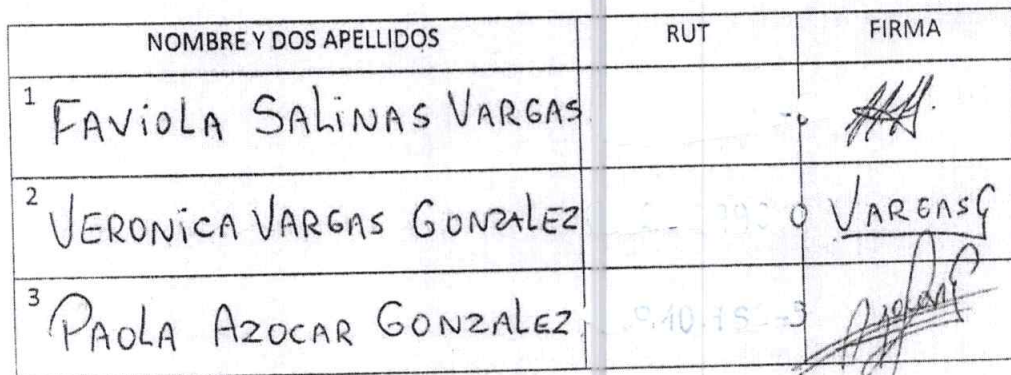 NOMBRE Y DOS APELLIDOS RUT FIRMA
1 FAViOLA SALiNAS VARGAS
2 VERONiCA VARGAS GONZALEZ 0 VARGAS G
3 PAOLA AZOCAR GONZALEZ 3